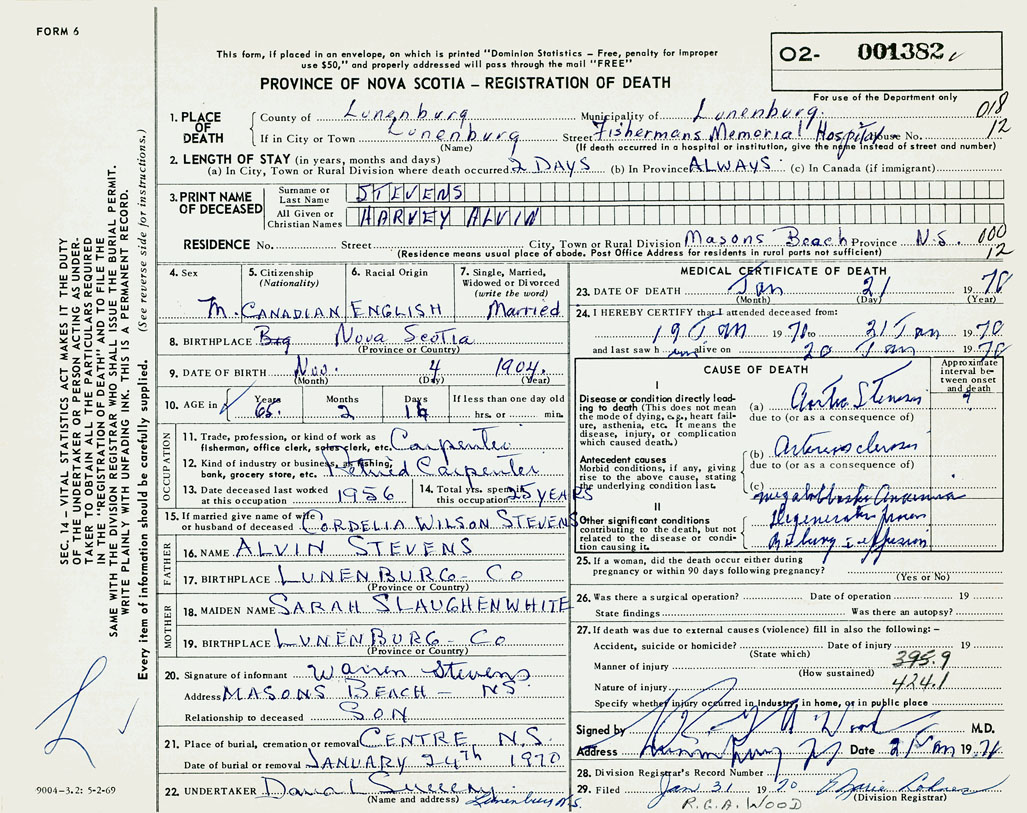 FORM 6
This form, if placed in an envelope, on which is printed "Dominion Statistics – Free, penalty for improper
use $50," and properly addressed will pass through the mail "FREE"
PROVINCE OF NOVA SCOTIA – REGISTRATION OF DEATH
O2- 001382
For use of the Department only
018
12
1. PLACE OF DEATH
County of Lunenburg Municipality of Lunenburg
If in City or Town Lunenburg Street Fishermans Memorial Hospital House No.
(Name) (If death occurred in a hospital or institution, give the name instead of street and number)
2. LENGTH OF STAY (in years, months and days)
(a) In City, Town or Rural Division where death occurred 2 DAYS (b) In Province ALWAYS (c) In Canada (if immigrant)
3. PRINT NAME OF DECEASED
Surname or Last Name STEVENS
All Given or Christian Names HARVEY ALVIN
RESIDENCE No. Street City, Town or Rural Division Masons Beach Province N.S. 000
12
(Residence means usual place of abode. Post Office Address for residents in rural parts not sufficient)
4. Sex 5. Citizenship (Nationality) 6. Racial Origin 7. Single, Married, Widowed or Divorced (write the word)
M. CANADIAN ENGLISH Married
8. BIRTHPLACE Nova Scotia
(Province or Country)
9. DATE OF BIRTH Nov. 4 1904
(Month) (Day) (Year)
10. AGE in Years Months Days If less than one day old
65 2 hrs. or min.
OCCUPATION
11. Trade, profession, or kind of work as
fisherman, office clerk, sales clerk, etc. Carpenter
12. Kind of industry or business, as fishing,
bank, grocery store, etc. Retired Carpenter
13. Date deceased last worked at this occupation 1956
14. Total yrs. spent in this occupation 25 YEARS
15. If married give name of wife
or husband of deceased CORDELIA WILSON STEVENS
FATHER
16. NAME ALVIN STEVENS
17. BIRTHPLACE LUNENBURG - Co
(Province or Country)
MOTHER
18. MAIDEN NAME SARAH SLAUGHENWHITE
19. BIRTHPLACE LUNENBURG - Co
(Province or Country)
20. Signature of informant Warren Stevens
Address MASONS BEACH - NS
Relationship to deceased SON
21. Place of burial, cremation or removal CENTRE N.S.
Date of burial or removal JANUARY 24th 1970
22. UNDERTAKER
(Name and address) Lunenburg N.S.
MEDICAL CERTIFICATE OF DEATH
23. DATE OF DEATH Jan 21 1970
(Month) (Day) (Year)
24. I HEREBY CERTIFY that I attended deceased from:
19 Jan 1970 to 21 Jan 1970
and last saw him alive on 20 Jan 1970
CAUSE OF DEATH
Approximate interval between onset and death
I
Disease or condition directly leading to death (This does not mean the mode of dying, e.g., heart failure, asthenia, etc. It means the disease, injury, or complication which caused death.)
(a) Aortic Stenosis ?
due to (or as a consequence of)
Antecedent causes
Morbid conditions, if any, giving rise to the above cause, stating the underlying condition last.
(b) Arteriosclerosis
due to (or as a consequence of)
(c) megaloblastic Anaemia
II
Other significant conditions contributing to the death, but not related to the disease or condition causing it.
Degenerative
25. If a woman, did the death occur either during
pregnancy or within 90 days following pregnancy?
(Yes or No)
26. Was there a surgical operation? Date of operation 19
State findings Was there an autopsy?
27. If death was due to external causes (violence) fill in also the following: –
Accident, suicide or homicide? Date of injury 19
(State which) 395.9
Manner of injury
(How sustained)
424.1
Nature of injury
Specify whether injury occurred in industry, in home, or in public place
Signed by Wood M.D.
Address Date 21 Jan 1970
28. Division Registrar's Record Number
29. Filed Jan 31 1970
(Division Registrar)
R.G.A. WOOD
SEC. 14 – VITAL STATISTICS ACT MAKES IT THE DUTY
OF THE UNDERTAKER OR PERSON ACTING AS UNDER-
TAKER TO OBTAIN ALL THE PARTICULARS REQUIRED
IN THE "REGISTRATION OF DEATH" AND TO FILE THE
SAME WITH THE DIVISION REGISTRAR WHO SHALL ISSUE THE BURIAL PERMIT.
WRITE PLAINLY WITH UNFADING INK. THIS IS A PERMANENT RECORD.
Every item of information should be carefully supplied. (See reverse side for instructions.)
9004-3.2: 5-2-69